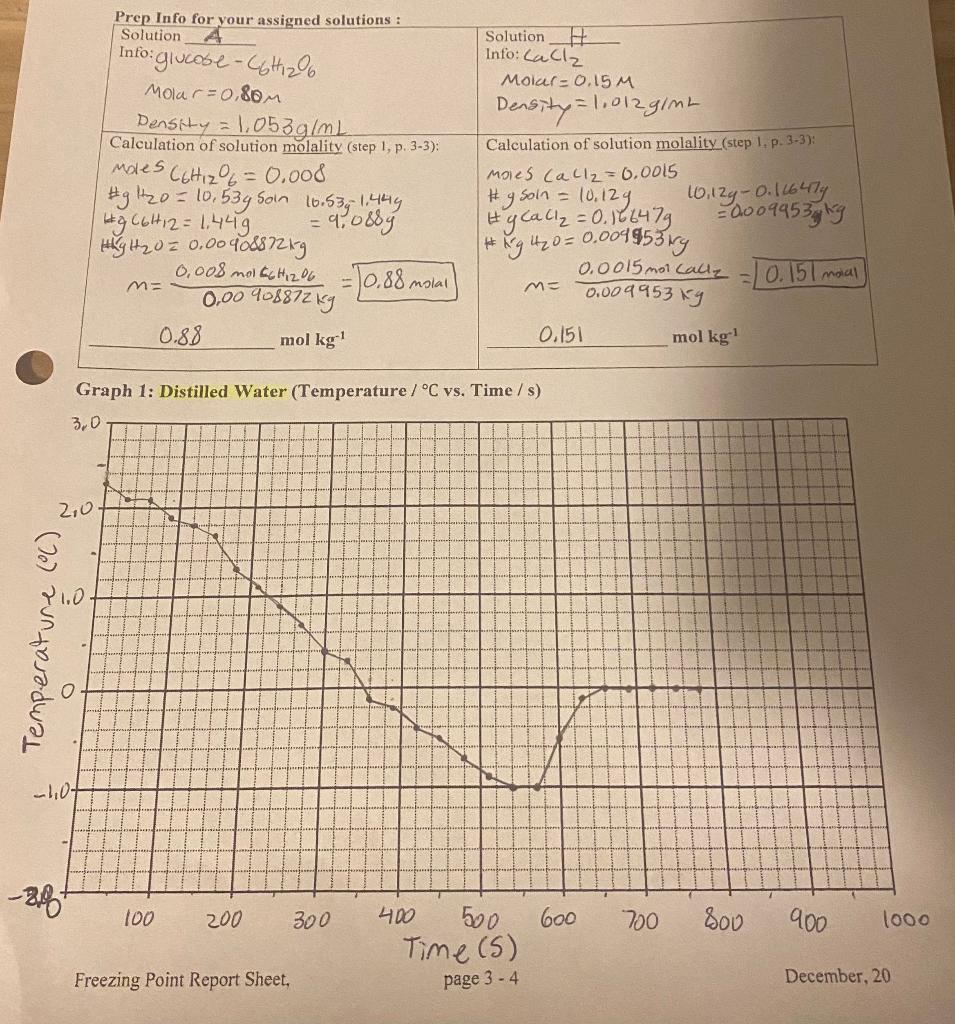 Prep Info for your assigned solutions :
Solution A
Info: glucose - C6H12O6
Molar = 0.80M
Density = 1.053g/mL
Solution H
Info: CaCl2
Molar = 0.15 M
Density = 1.012 g/mL
Calculation of solution molality (step 1, p. 3-3):
moles C6H12O6 = 0.008
#g H2O = 10.53g soln 10.53g - 1.44g
#g C6H12 = 1.44g = 9.088g
#kg H2O = 0.00908872kg
m = 0.008 mol C6H12O6 / 0.00908872 kg = 0.88 molal
0.88 mol kg-1
Calculation of solution molality (step 1, p. 3-3):
moles CaCl2 = 0.0015
# g soln = 10.12g 10.12g - 0.16647g
# g CaCl2 = 0.16647g = 0.009953 kg
# kg H2O = 0.009953 kg
m = 0.0015 mol CaCl2 / 0.009953 kg = 0.151 molal
0.151 mol kg-1
Graph 1: Distilled Water (Temperature / °C vs. Time / s)
3.0
2.0
1.0
0
-1.0
Temperature (°C)
100 200 300 400 500 600 700 800 900 1000
Time (S)
Freezing Point Report Sheet, page 3 - 4 December, 20